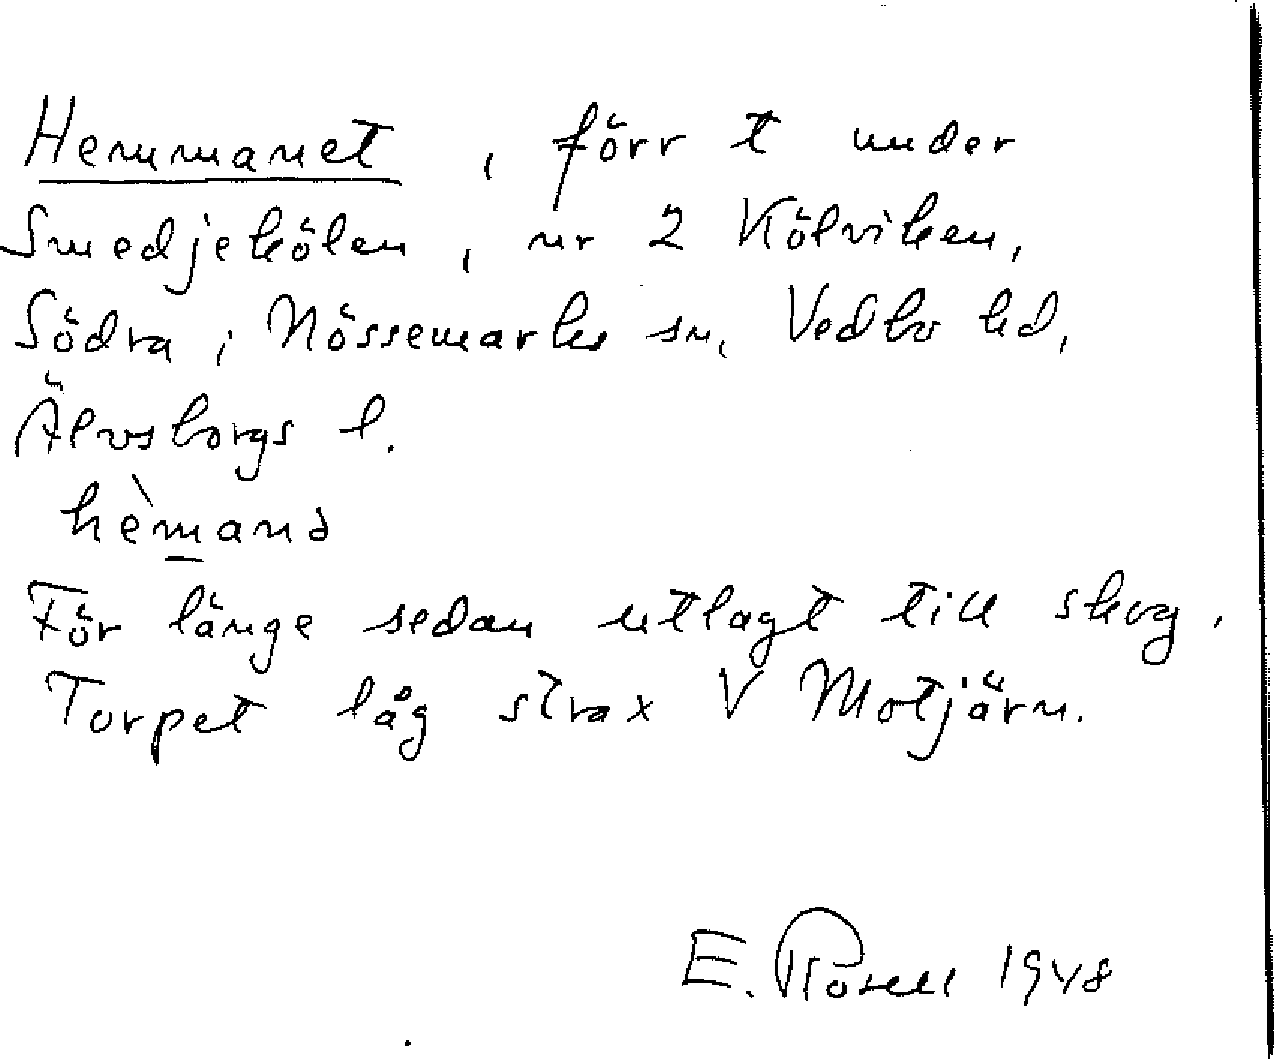 Hemmanet, förr t under
Smedjekölen, nr 2 Kölviken,
Södra, i Nössemarks sn, Vedbo hd,
Älvsborgs l.
hèmanə
För länge sedan utlagt till skog.
Torpet låg strax V Motjärn.
E. Rosell 1948